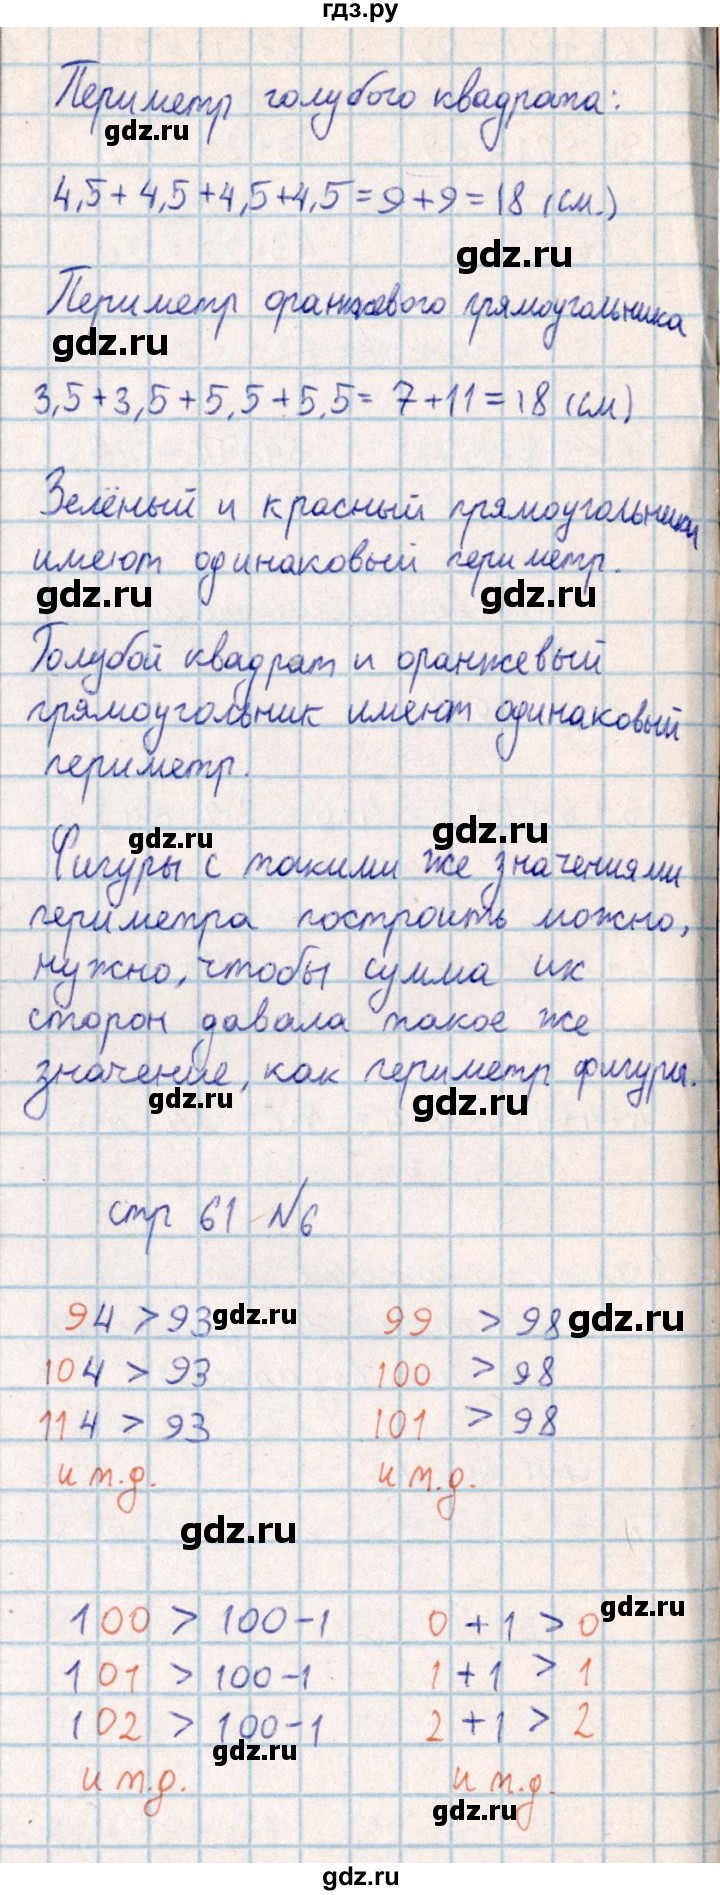 гдз.ру
Периметр голубого квадрата:
gdz.ru
4,5+4,5+4,5+4,5=9+9=18 (см.)
gdz.ru
Периметр оранжевого прямоугольника
gdz.ru
3,5+3,5+5,5+5,5= 7+11=18 (см)
Зелёный и красный прямоугольники
имеют одинаковый периметр.
gdz.ru gdz.ru
Голубой квадрат и оранжевый
прямоугольник имеют одинаковый
периметр.
gdz.ru gdz.ru
Фигуры с такими же значениями
периметра построить можно,
нужно, чтобы сумма их
сторон давала такое же
значение, как периметр фигуры.
gdz.ru gdz.ru
стр 61 №6
94 > 93 gdz.ru 99 > 98 gdz.ru
104 > 93 100 > 98
114 > 93 101 > 98
и т.д. и т.д.
gdz.ru
gdz.ru
100 > 100-1 0+1 > 0
101 > 100-1 1+1 > 1
102 > 100-1 2+1 > 2
gdz.ru
и т.д. и т.д.
gdz.ru
gdz.ru